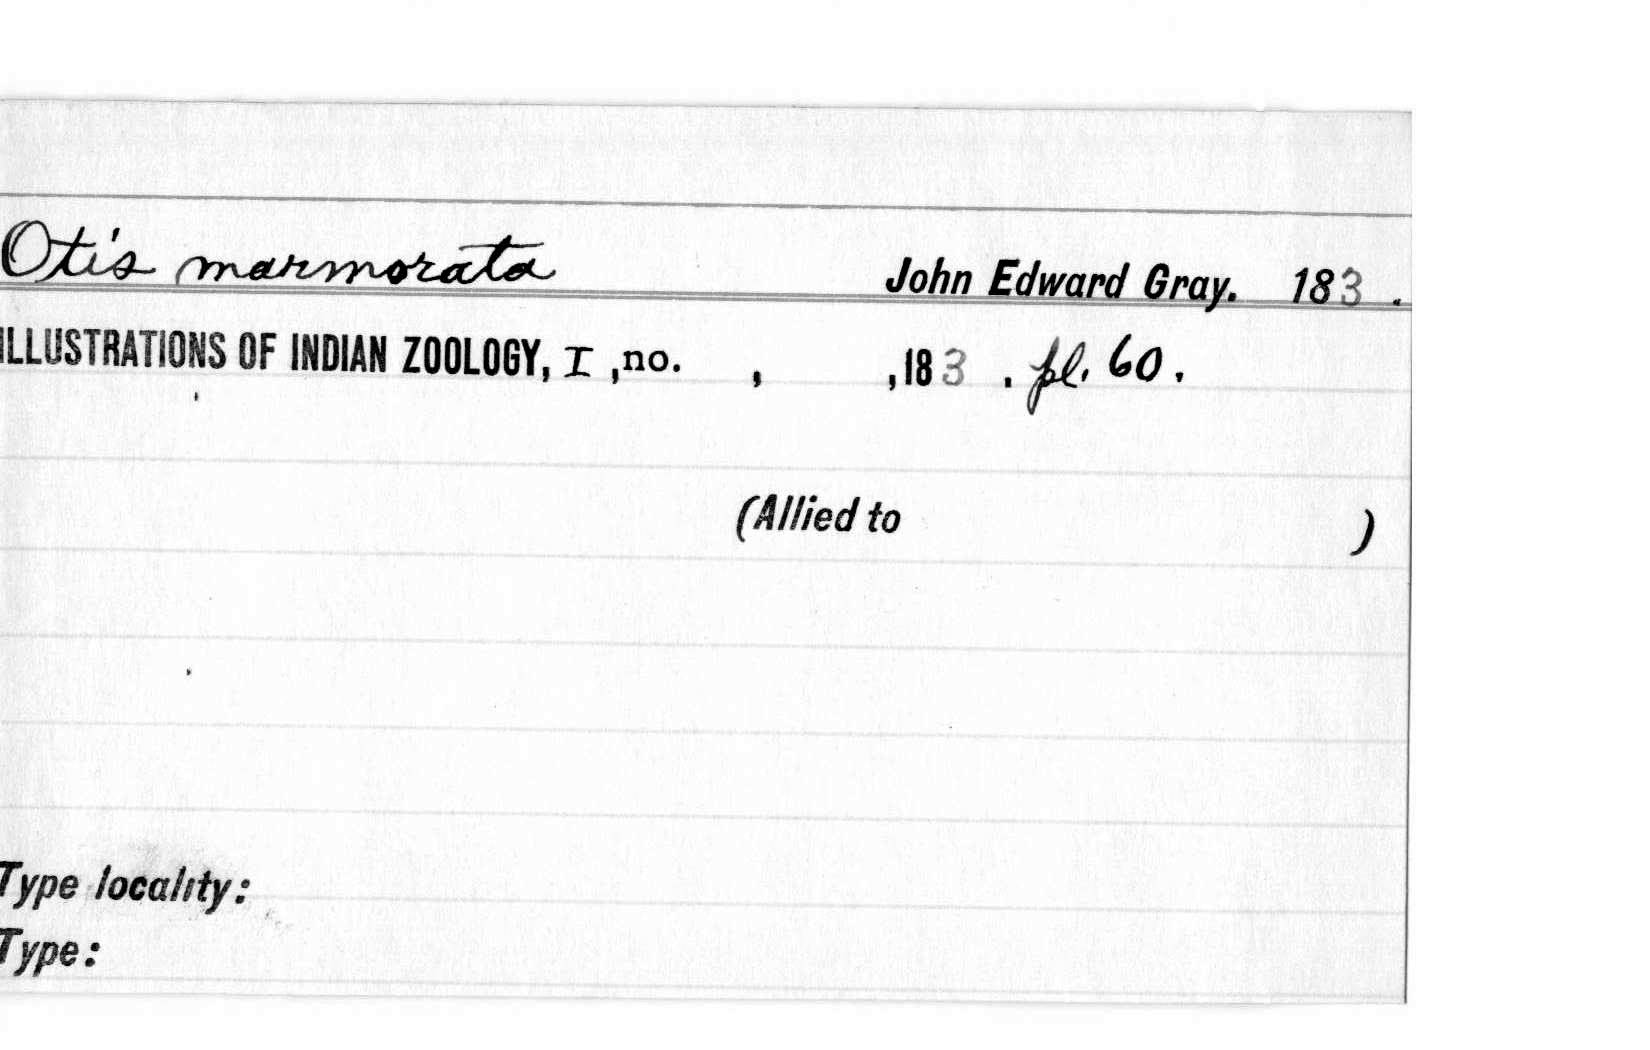 Otis marmorata John Edward Gray. 183 .
ILLUSTRATIONS OF INDIAN ZOOLOGY, I ,no. , ,183 . pl. 60.
(Allied to )
Type locality:
Type: